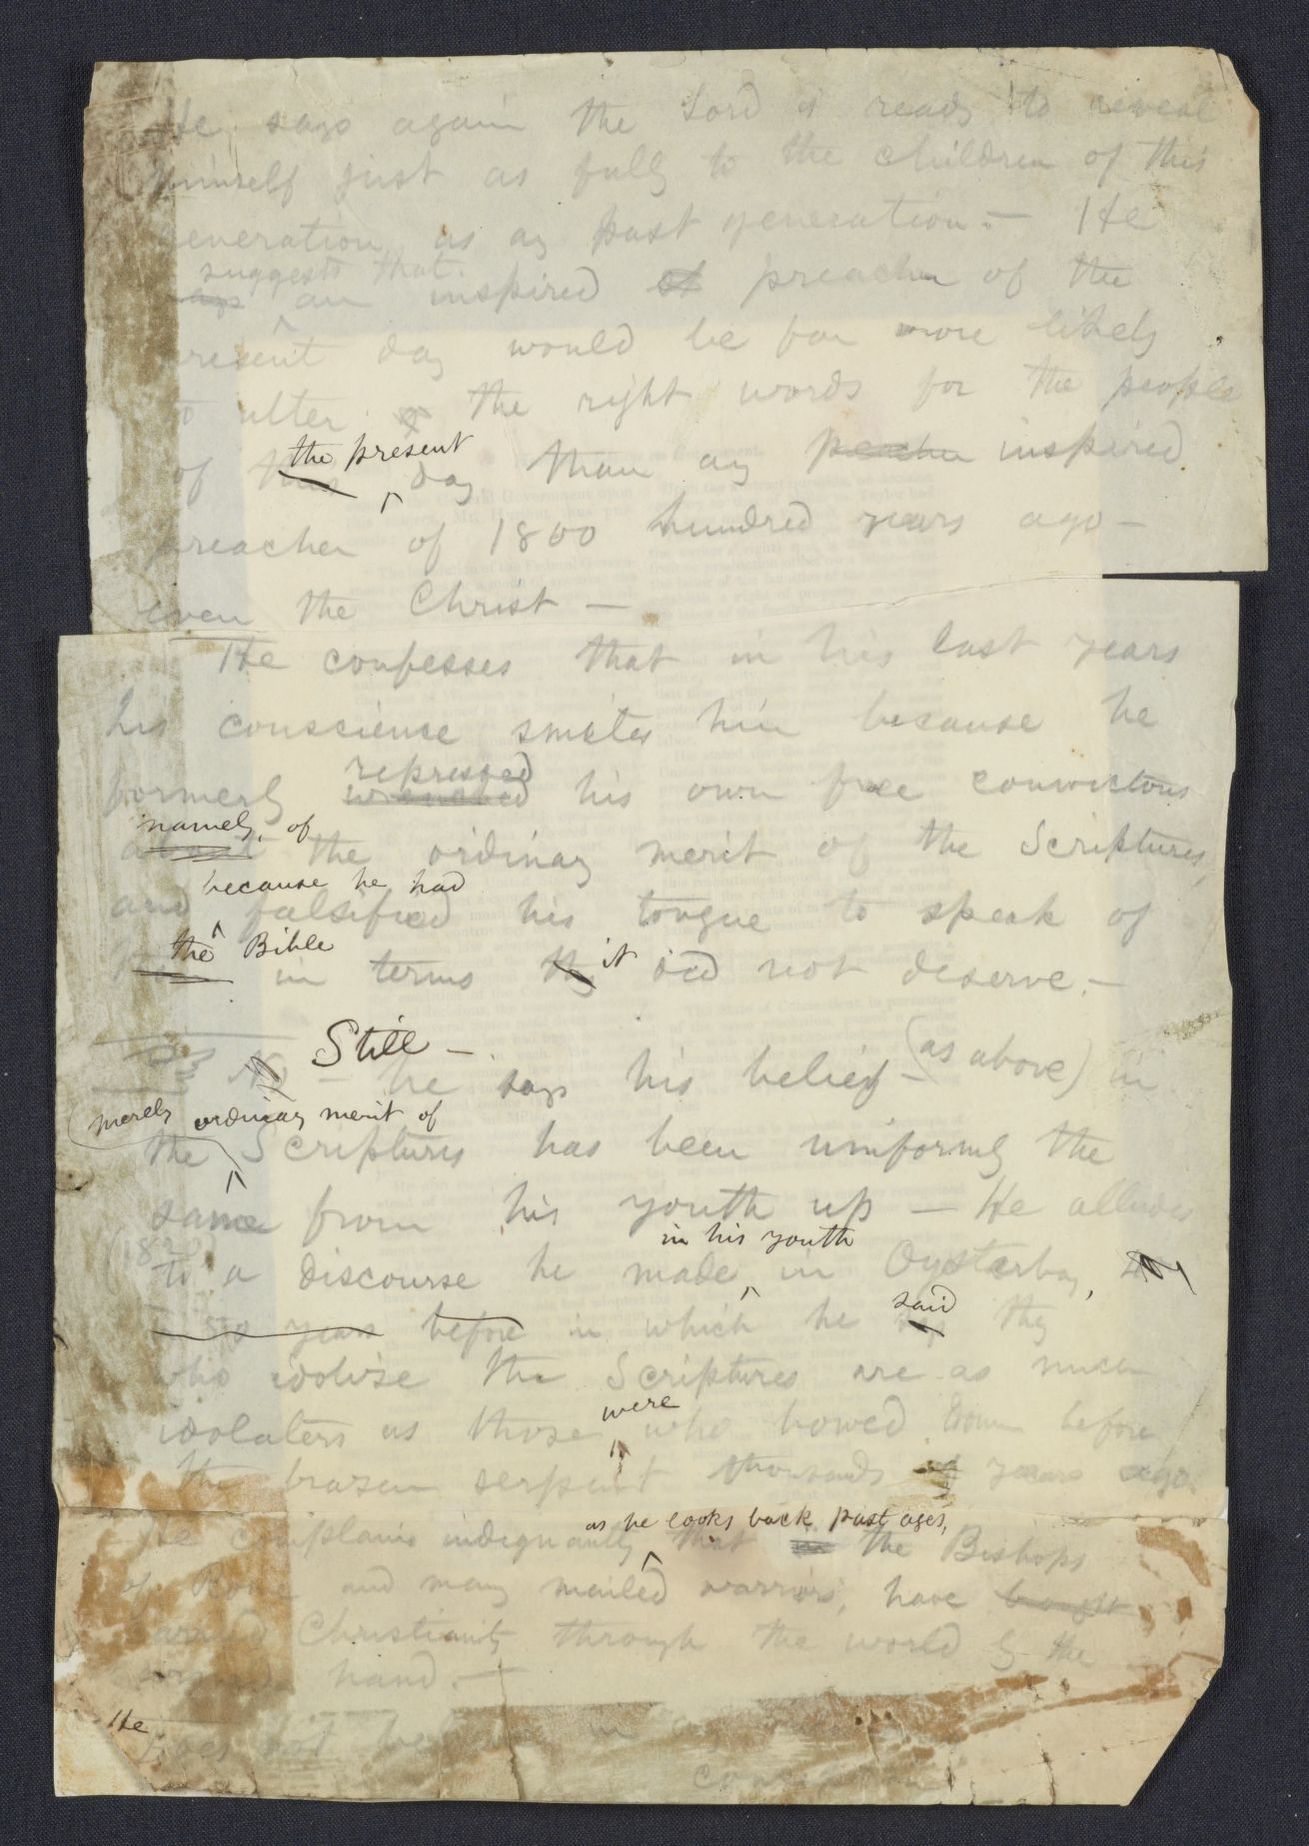 He says again the Lord is ready to reveal
himself just as fully to the children of this
generation as any past generation. — He
suggests that
says an inspired of preacher of the
present day would be far more likely
to utter the right words for the people
the present
of this day than any preacher inspired
preacher of 1800 hundred years ago —
even the Christ —
He confesses that in his last years
his conscience smites him because he
repressed
formerly wrenched his own free convictions
namely, of
about the ordinary merit of the Scriptures,
because he had
and falsified his tongue to speak of
the Bible it
in terms they did not deserve. —
Still —
No — he says his belief — (as above) in
(merely ordinary merit of
the Scriptures has been uniformly the
same from his youth up — He alludes
in his youth
to a discourse he made, in Oysterbay,
said
50 years before in which he says they
who idolize the Scriptures are as much
were
idolaters as those who bowed down before
the brazen serpent thousands of years ago.
as he looks back past ages,
He complains indignantly that the Bishops
of Rome and many mailed warriors, have brought
carried Christianity through the world by the
hand. —
He
does not